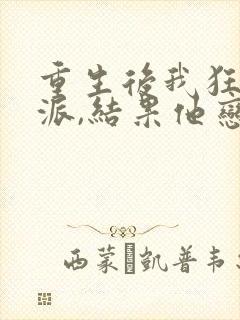 重生後我狂
派,結果他戀
西蒙�凱普韦